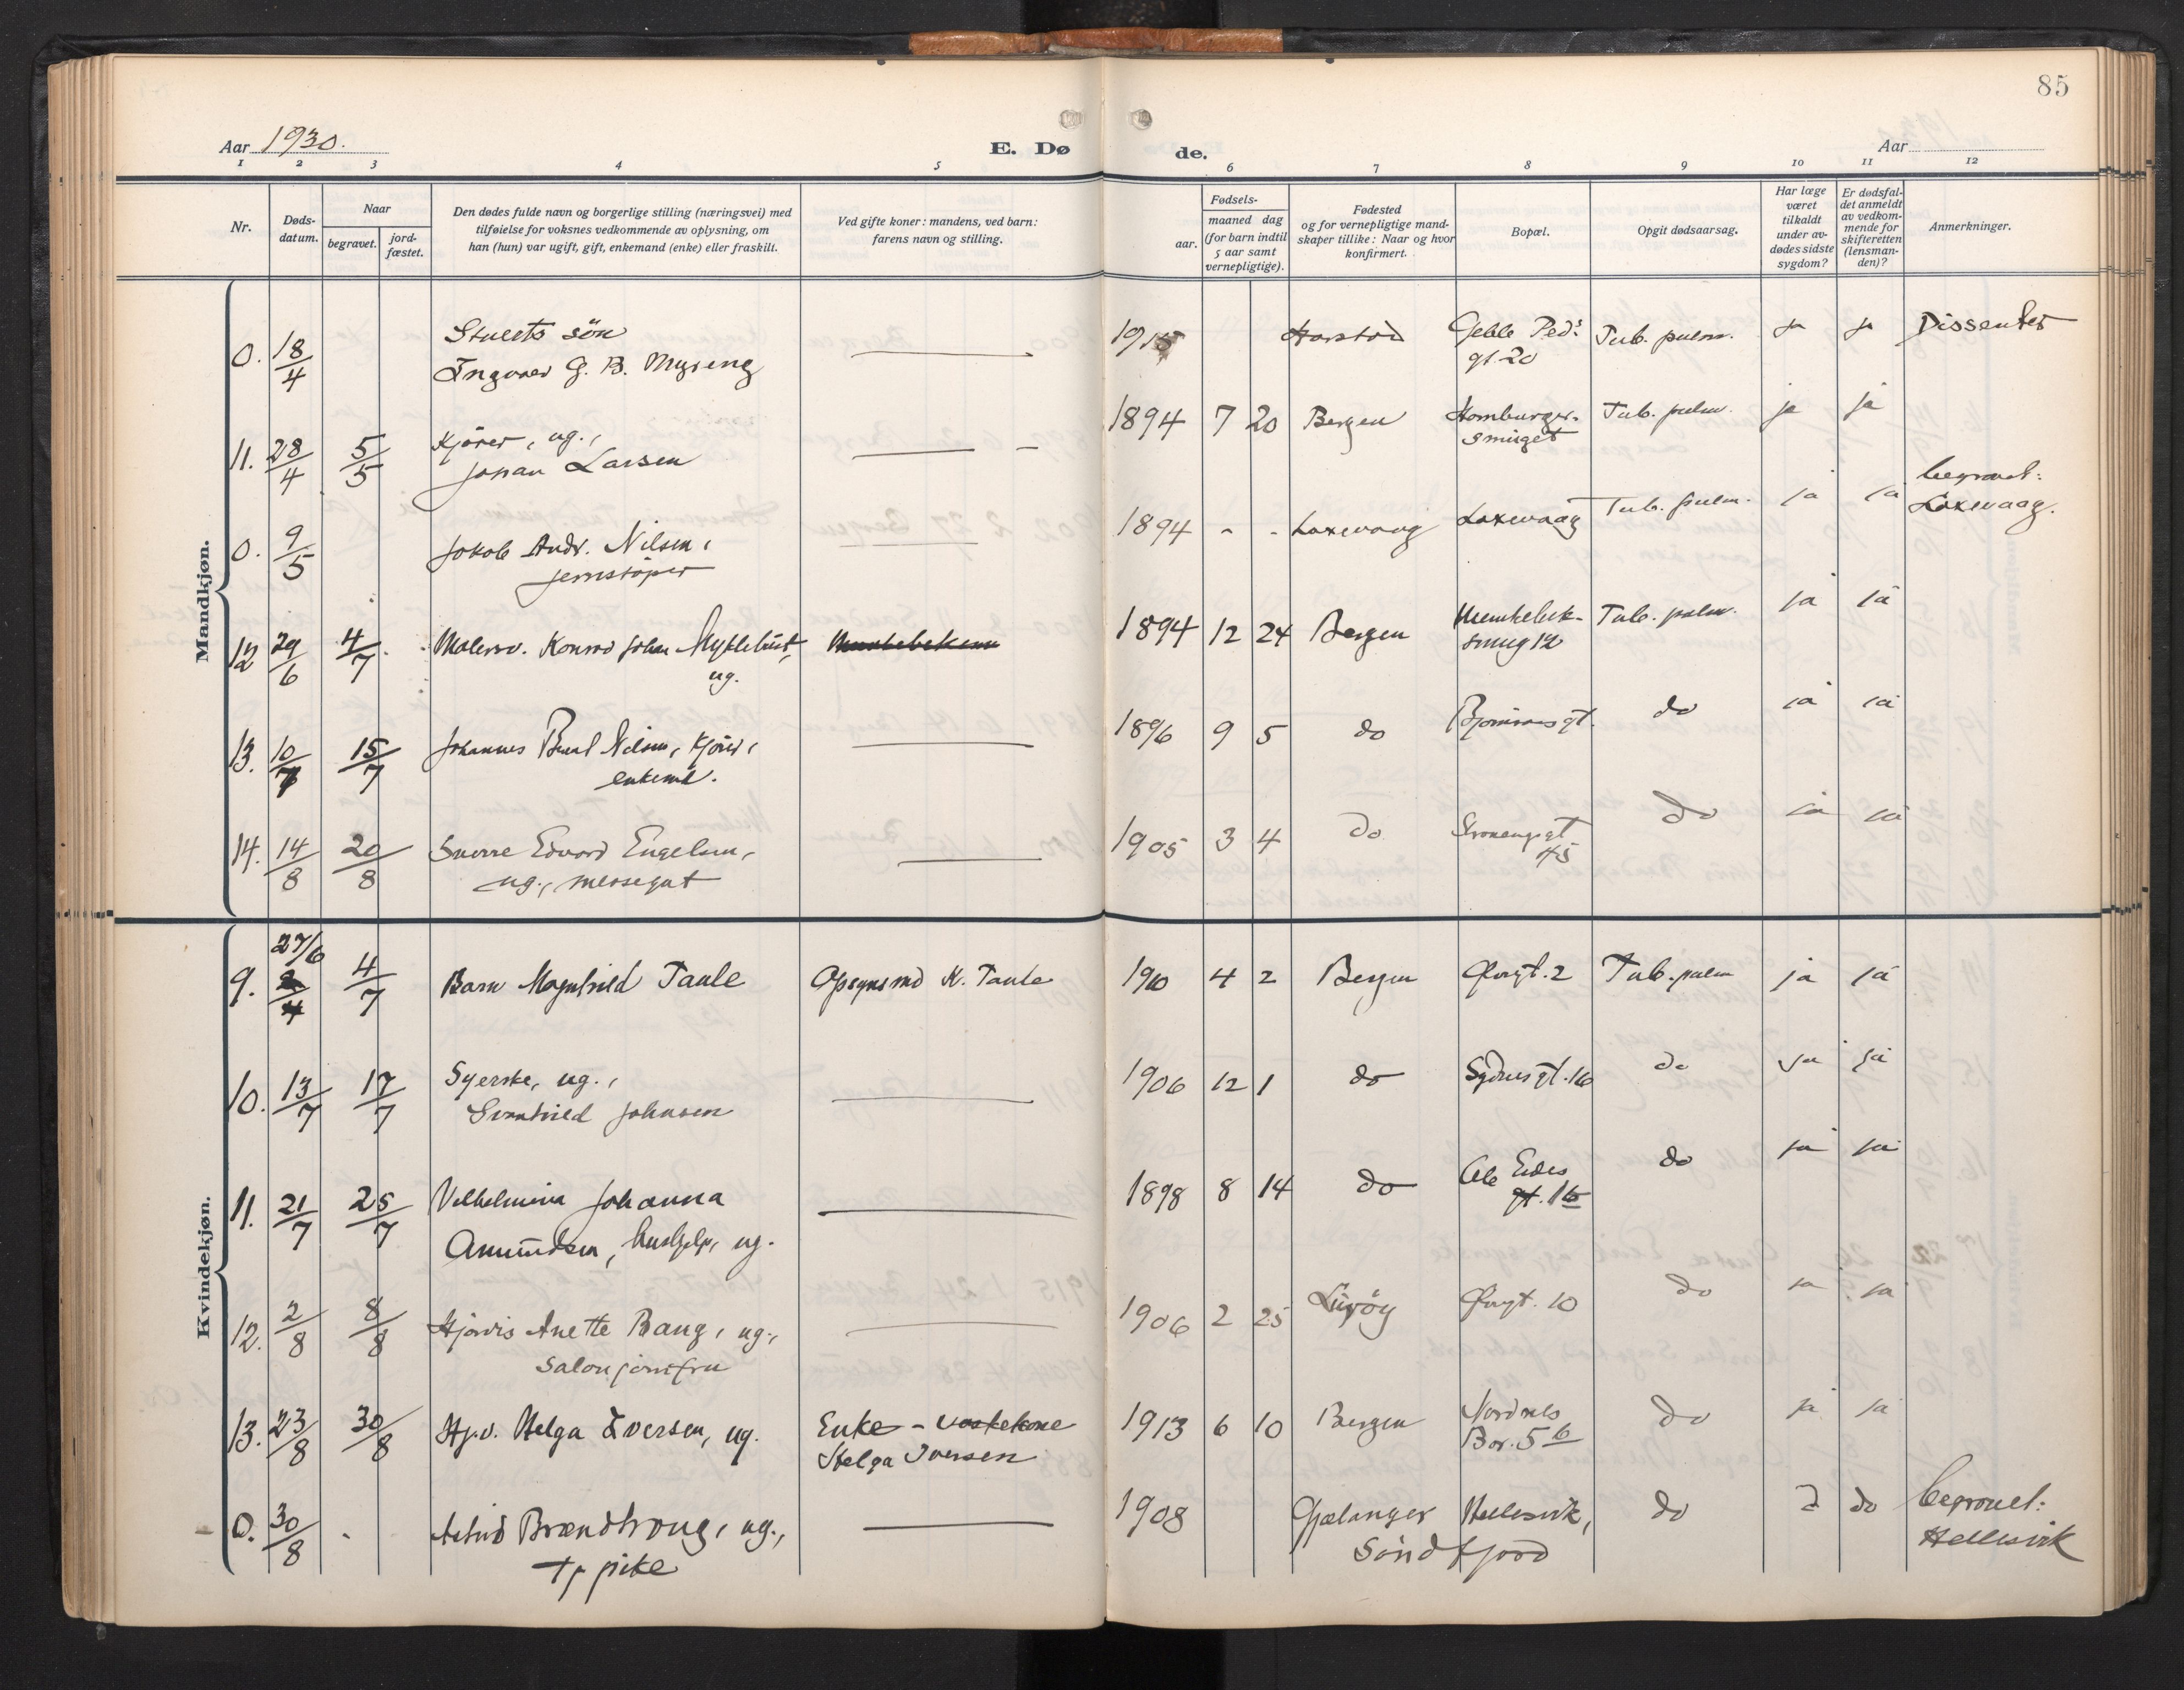 85
Aar 1930.
E. Dø
de.
Aar
1 2 3 4 5 6 7 8 9 10 11 12
Nr.
Døds-
datum.
Naar
begravet.
jord-
fæstet.
Den dødes fulde navn og borgerlige stilling (næringsvei) med
tilføielse for voksnes vedkommende av oplysning, om
han (hun) var ugift, gift, enkemand (enke) eller fraskilt.
Ved gifte koner: mandens, ved barn:
farens navn og stilling.
Fødsels-
aar.
maaned dag
(for barn indtil
5 aar samt
vernepligtige).
Fødested
og for vernepligtige mand-
skaper tillike: Naar og hvor
konfirmert.
Bopæl.
Opgit dødsaarsag.
Har læge
været
tilkaldt
under av-
dødes sidste
sygdom?
Er dødsfal-
det anmeldt
av vedkom-
mende for
skifteretten
(lensman-
den)?
Anmerkninger.
Mandkjøn.
0. 18/4 søn 1915 Harstad Geble Peds Tub. pulm. ja ja Dissenter
Ingvald G. B. Myreng — gt. 20
11. 28/4 5/5 Kjører, ug., — 1894 7 20 Bergen Homburger- Tub. pulm. ja ja
Johan Larsen smuget
0. 9/5 Jakob Andr. Nilsen, — 1894 - - Laxevaag Laxevaag Tub. pulm. ja ja begravet:
jernstøper Laxevaag.
12 29/6 4/7 Malersv. Konrad Johan Myklebust, 1894 12 24 Bergen Munkebek- Tub. pulm. ja ja
ug. smug 12
13. 10/7 15/7 Johannes Nilsen, kjører, — 1896 9 5 do gt. do ja ja
enkemd.
14. 14/8 20/8 Sverre Edvard Engelsen, — 1905 3 4 do Skovengsgt do ja ja
ug., messegut 45
Kvindekjøn.
9. 27/6 4/7 Barn Magnhild Taule Opsynsmd K. Taule 1910 4 2 Bergen 2 Tub. pulm ja ja
10. 13/7 17/7 Syerske, ug., — 1906 12 1 do Sydnesgt. 16 do ja ja
Svanhild Johnsen
11. 21/7 25/7 Vilhelmina Johanna — 1898 8 14 do Ole Eides do ja ja
Amundsen, hushjelp, ug. gt. 16
12. 2/8 8/8 Hjørdis Anette Bang, ug., — 1906 2 25 Lurøy 10 do ja ja
salonjomfru
13. 23/8 30/8 Hj.v. Helga Iversen, ug. Enke - vaskekone 1913 6 10 Bergen Nordnes do ja ja
Helga Iversen 5 b
0. 30/8 Astrid Brændhaug, ug., — 1908 Gjælanger Hellesvik, do do begravet:
Tj. pike Søndfjord Hellesvik